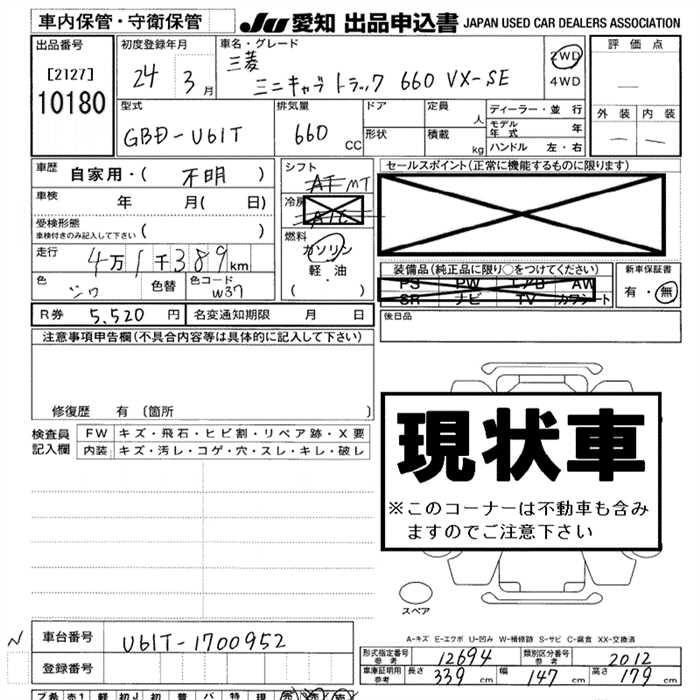 車内保管・守衛保管 JU 愛知 出品申込書 JAPAN USED CAR DEALERS ASSOCIATION
出品番号 初度登録年月 車名・グレード 評価点
[2127] 24 3月 三菱 2WD
10180 ミニキャブトラック 660 VX-SE 4WD
型式 排気量 ドア 定員 人 ディーラー・並行 外装 内装
GBD-U61T 660 CC 形状 積載 kg モデル年式 年
ハンドル 左・右
車歴 自家用・( 不明 ) シフト AT MT セールスポイント(正常に機能するものに限ります)
車検 年 月( 日) 冷房 A/C
受検形態 ( )
車検付きのみ記入して下さい
燃料
走行 4万1千389km ガソリン
軽・油
( )
装備品(純正品に限り○をつけてください) 新車保証書
色 シロ 色替 色コード W37 PS PW エアB AW 有・無
SR ナビ TV カワシート
R券 5,520円 名変通知期限 月 日 後日品
注意事項申告欄(不具合内容等は具体的に記入して下さい)
修復歴 有 〔箇所 〕
検査員 FW キズ・飛石・ヒビ割・リペア跡・X要
記入欄 内装 キズ・汚レ・コゲ・穴・スレ・キレ・破レ
現状車
※このコーナーは不動車も含み
ますのでご注意下さい
スペア
A-キズ E-エクボ U-凹み W-補修跡 S-サビ C-腐食 XX-交換済
N 車台番号 U61T-1700952
登録番号
形式指定番号 参考 12694 類別区分番号 参考 2012
車庫証明用 参考 長さ 339 cm 幅 147 cm 高さ 179 cm